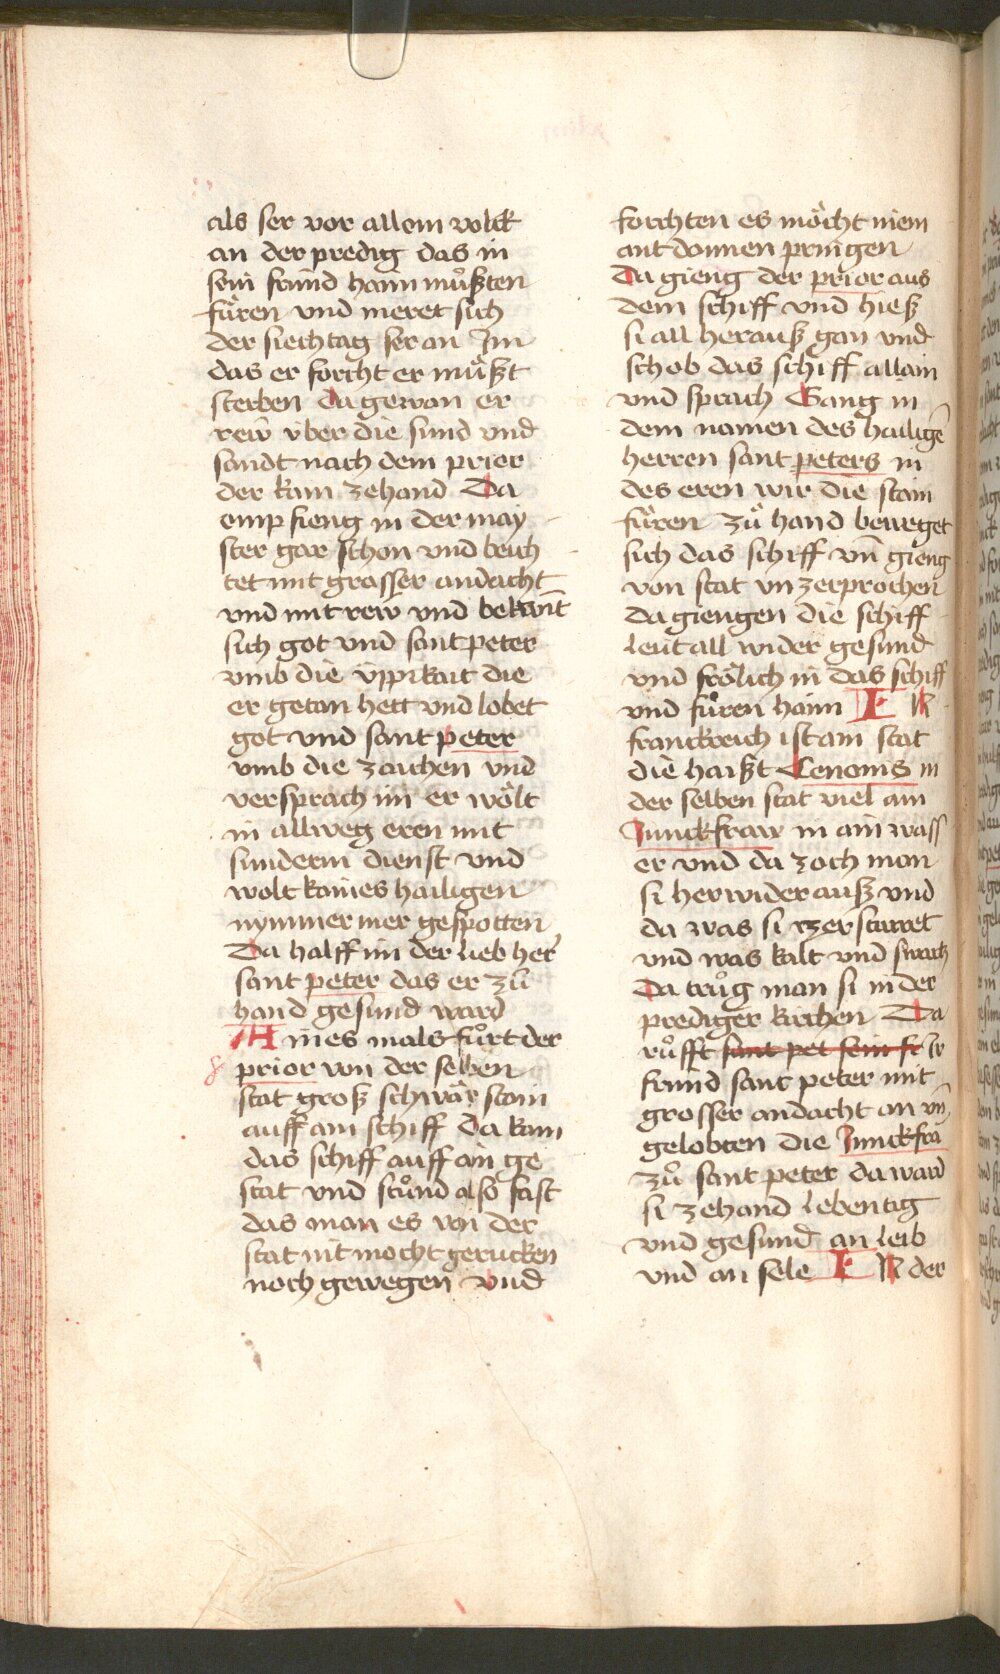 als ser vor allem volck
an der predig das in
sein frund haim muͦsten
fuͤren vnd meret sich
der siechtag ser an Im
das er forcht er muͤst
sterben da gewan er
rew vber die sund vnd
sandt nach dem prior
der kam zehand Da
empfieng in der may
ster gar schon vnd beich
tet mit grosser andacht
vnd mit rew vnd bekant̄
sich got vnd sant peter
vmb die üppikait die
er getan hett vnd lobet
got vnd sant peter
vmb die zaichen vnd
versprach im er woͤlt
in allweg eren mit
sunderm dienst vnd
wolt kaines hailigen
nymmer mer gespotten
Da halff im der lieb her
sant peter das er zu
hand gesund ward
AInes mals fuͦrt der
prior von der selben
stat groß schwaͤr stain
auff ain schiff Da kam
das schiff auff ain ge
stat vnd stuͦnd also fast
das man es von der
stat nit mocht gerucken
noch gewegen vnd
forchten es moͤcht niem
ant dannen pringen
Da gieng der prior aus
dem schiff vnd hieß
si all herauß gan vnd
schob das schiff allain
vnd sprach Gang in
dem namen des hailigē
herren sant peters in
des eren wir die stain
fuͤren zuͦ hand beweget
sich das schiff vn̄ gieng
von stat vnzerprochen
da giengen die schiff
leut all wider gesund
vnd froͤlich in das schiff
vnd fuͦren haim IN
franckreich ist ain stat
die haißt Cenomis in
der selben stat viel ain
Junckfraw in ain wass
er vnd da zoch man
si herwider auß vnd
da was si erstarret
vnd was kalt vnd swach
Da truͦg man si in der
prediger kirchen Da
ruͦfft sant pet sein fr Ir
frund sant peter mit
grosser andacht an vn̄
gelobten die Junckfra
zuͦ sant peter da ward
si zehand lebentig
vnd gesund an leib
vnd an sele IN der